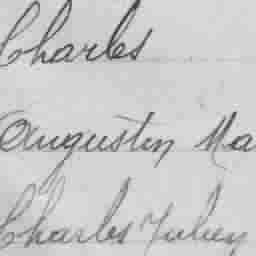 Charles
Augustin Ma
Charles Julien